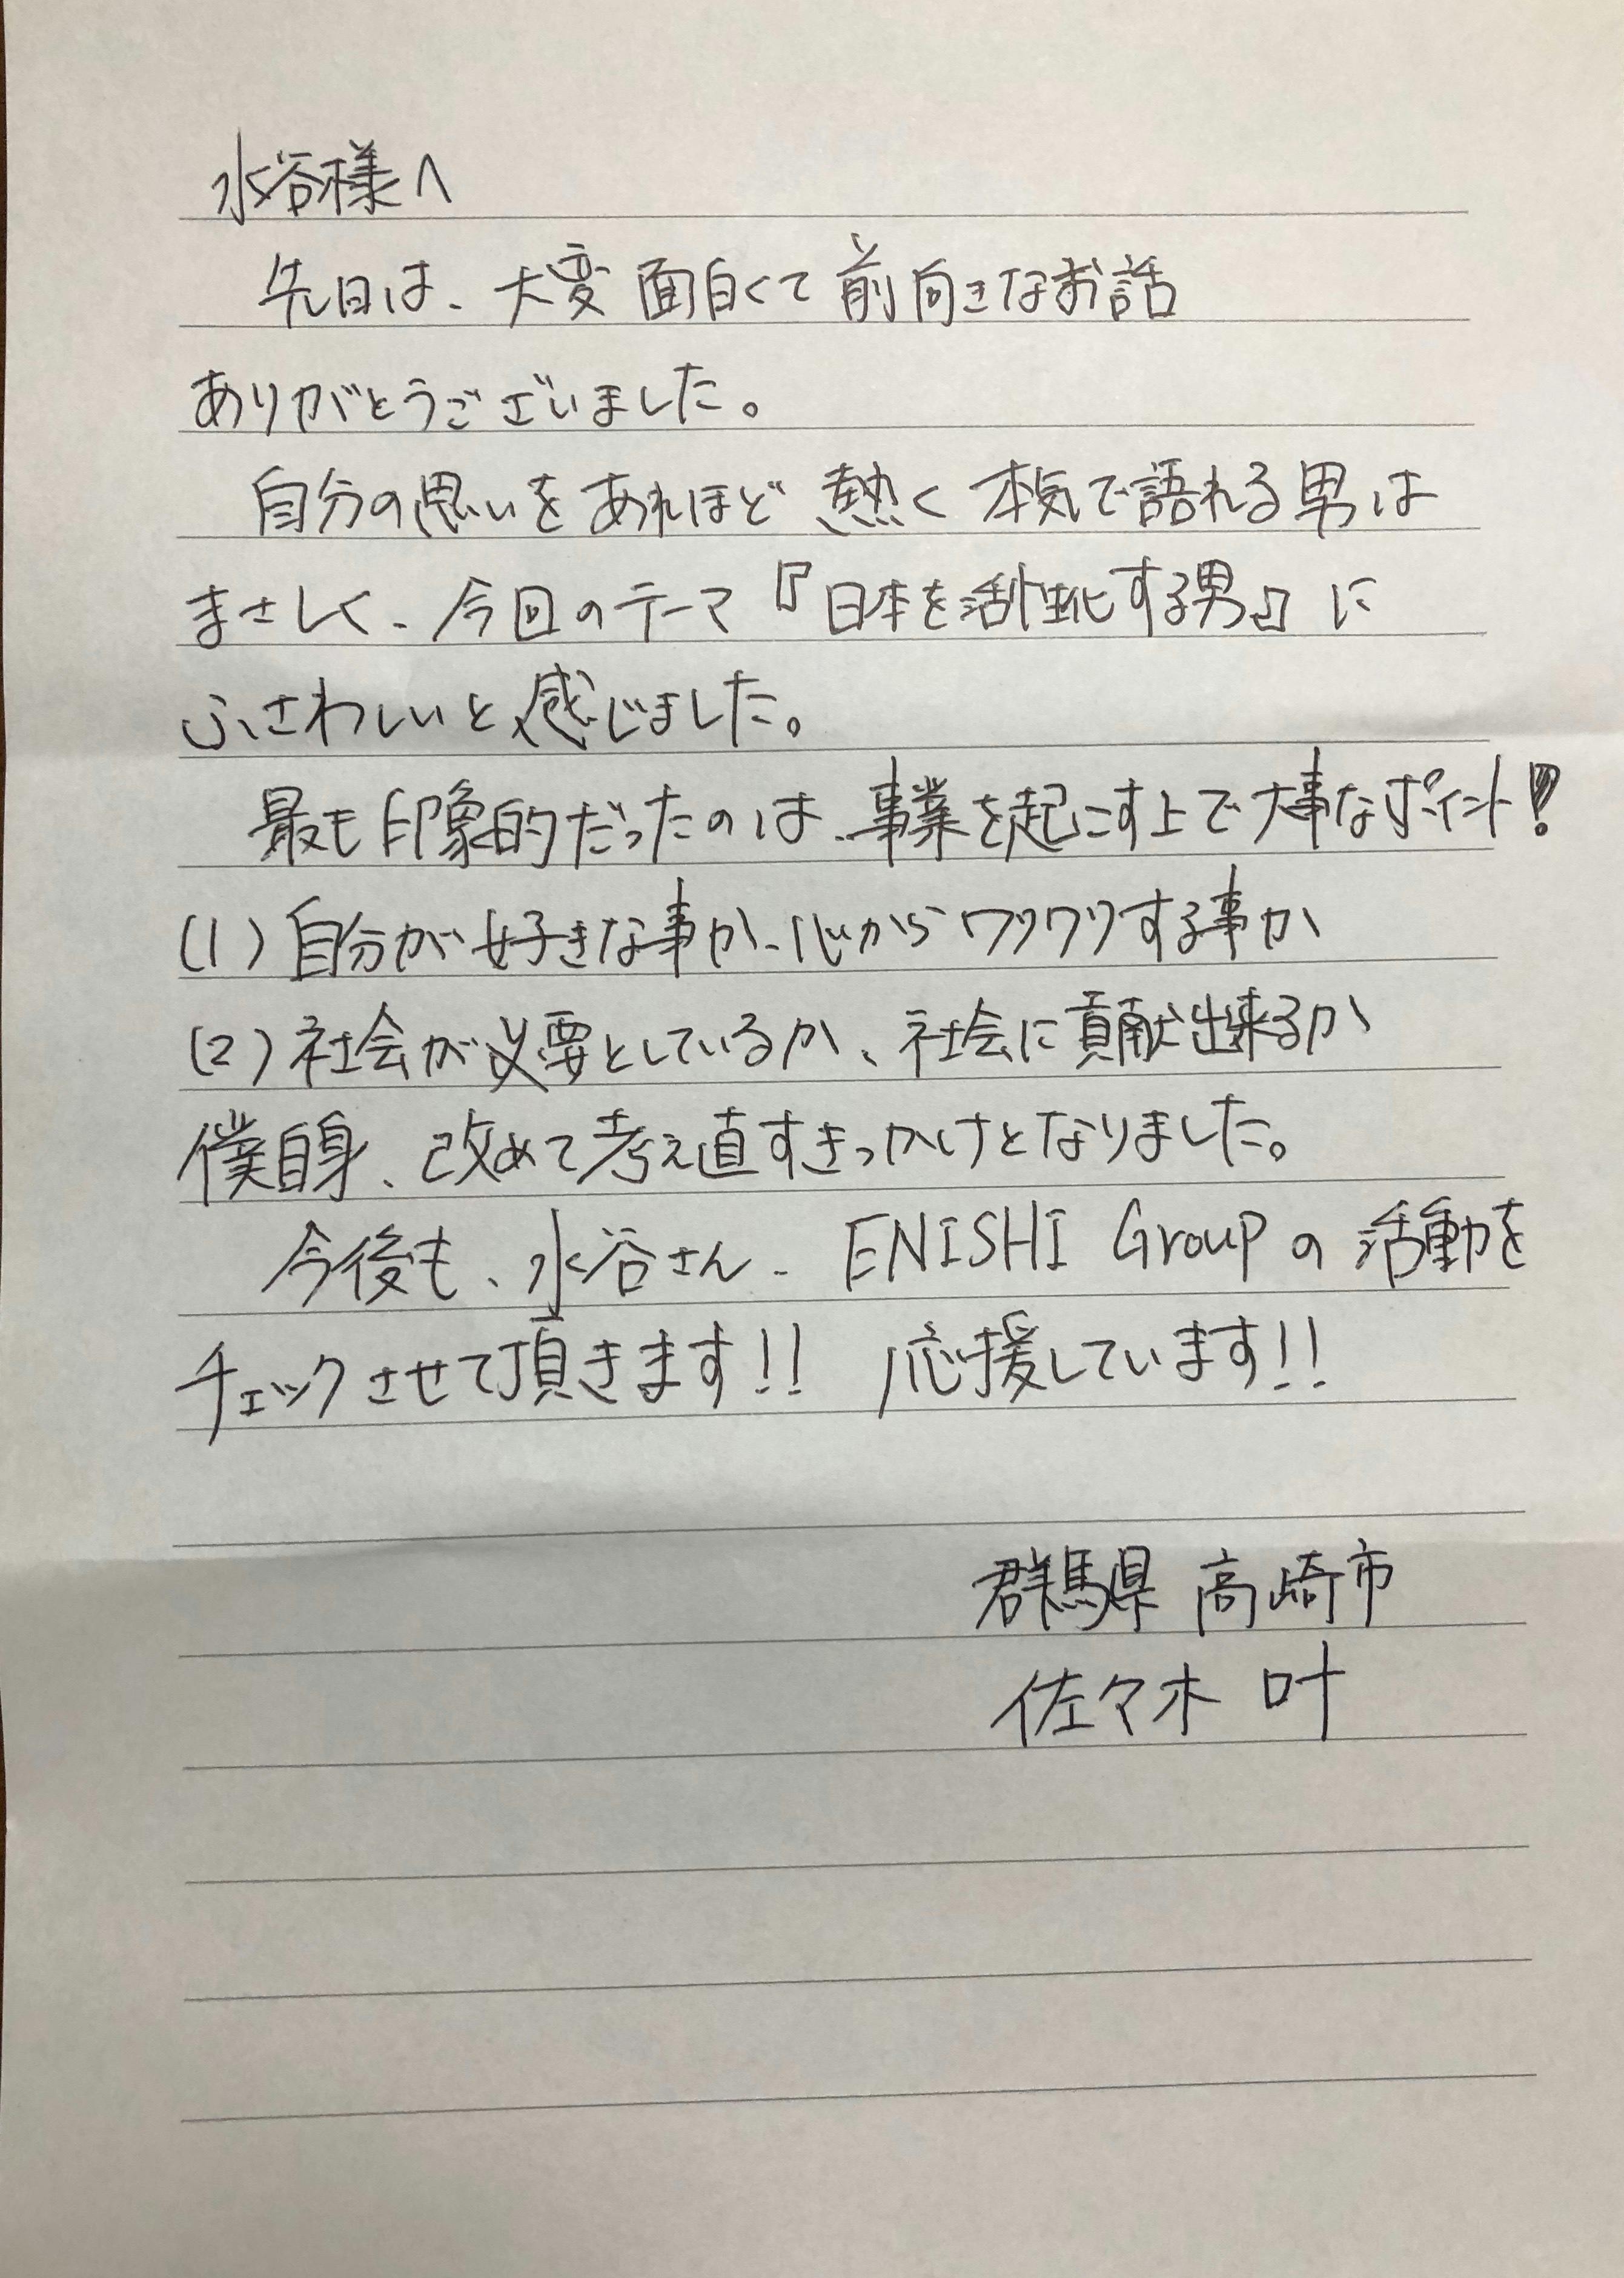 水谷様へ
先日は、大変面白くて前向きなお話
ありがとうございました。
自分の思いをあれほど熱く本気で語れる男は
まさしく、今回のテーマ『日本を活性化する男』に
ふさわしいと感じました。
最も印象的だったのは、事業を起こす上で大事なポイント!
(1)自分が好きな事か、心からワクワクする事か
(2)社会が必要としているか、社会に貢献出来るか
僕自身、改めて考え直すきっかけとなりました。
今後も、水谷さん、ENISHI Groupの活動を
チェックさせて頂きます!! 応援しています!!
群馬県 高崎市
佐々木 叶